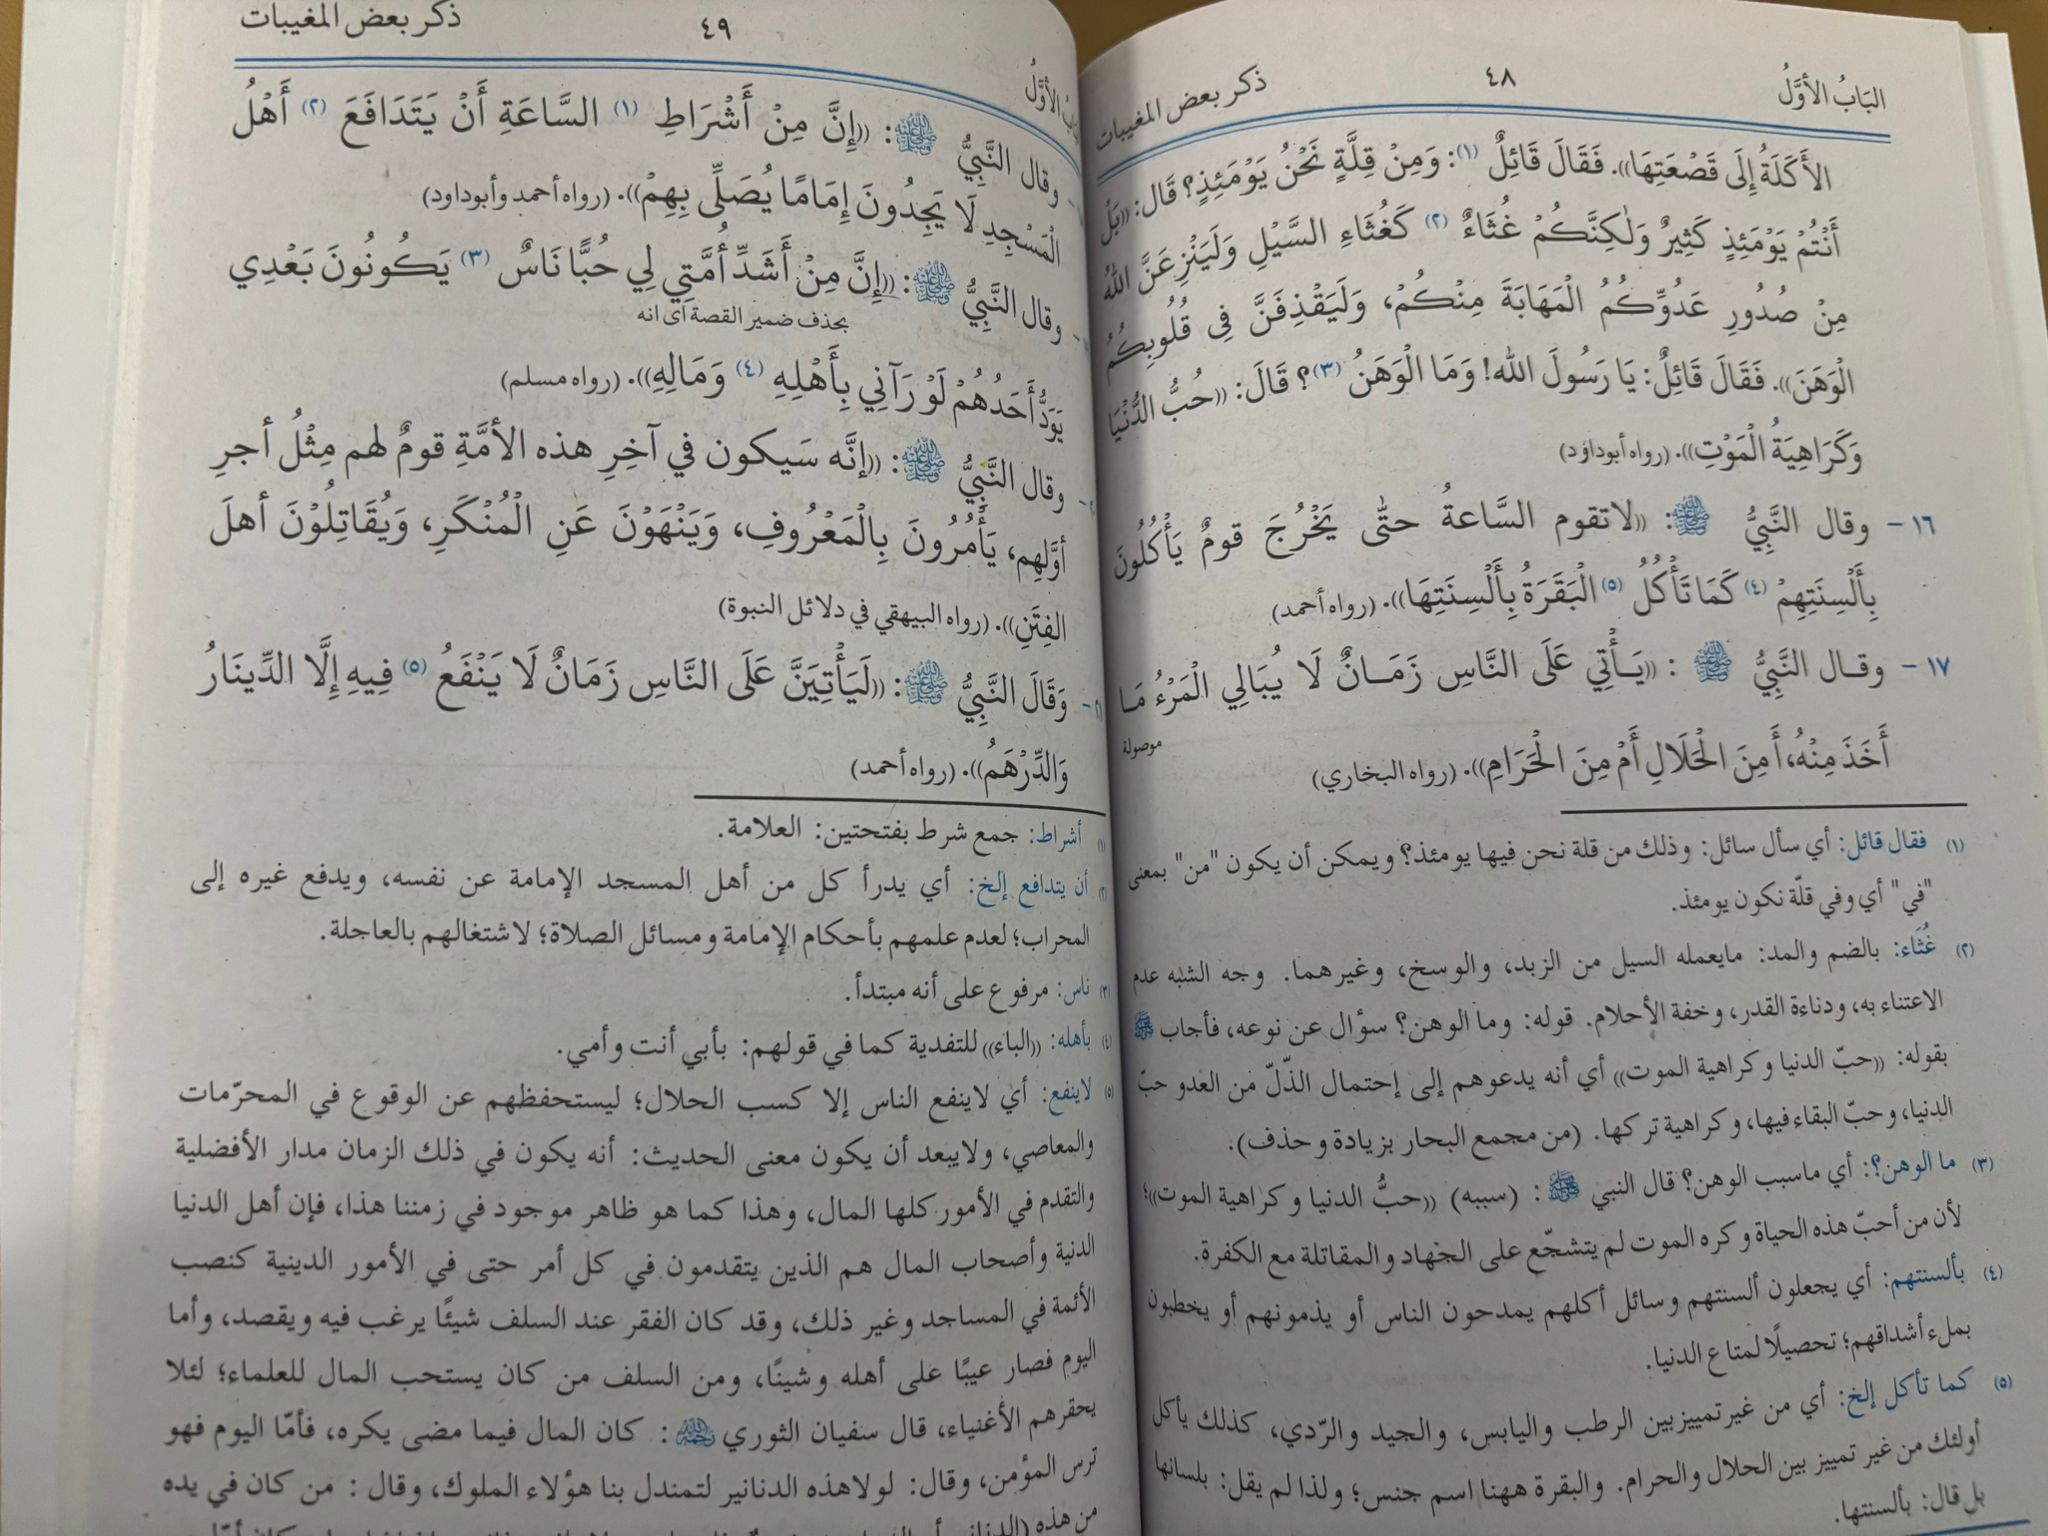 البَابُ الأوَّلُ ٤٨ ذكر بعض المغيبات
الأَكَلَةُ إِلَى قَصْعَتِهَا)). فَقَالَ قَائِلٌ (١): وَمِنْ قِلَّةٍ نَحْنُ يَوْمَئِذٍ؟ قَالَ: ((بَلْ
أَنْتُمْ يَوْمَئِذٍ كَثِيرٌ وَلٰكِنَّكُمْ غُثَاءٌ (٢) كَغُثَاءِ السَّيْلِ وَلَيَنْزِعَنَّ اللهُ
مِنْ صُدُورِ عَدُوِّكُمُ الْمَهَابَةَ مِنْكُمْ، وَلَيَقْذِفَنَّ فِي قُلُوبِكُمُ
الْوَهَنَ)). فَقَالَ قَائِلٌ: يَا رَسُولَ الله! وَمَا الْوَهَنُ (٣)؟ قَالَ: ((حُبُّ الدُّنْيَا
وَكَرَاهِيَةُ الْمَوْتِ)). (رواه أبوداؤد)
١٦ - وقال النَّبِيُّ ﷺ: ((لاتقوم السَّاعةُ حتّٰى يَخْرُجَ قومٌ يَأْكُلُونَ
بِأَلْسِنَتِهِمْ (٤) كَمَا تَأْكُلُ (٥) الْبَقَرَةُ بِأَلْسِنَتِهَا)). (رواه أحمد)
١٧ - وقال النَّبِيُّ ﷺ: ((يَأْتِي عَلَى النَّاسِ زَمَانٌ لَا يُبَالِي الْمَرْءُ مَا
موصولة
أَخَذَ مِنْهُ، أَمِنَ الْحَلَالِ أَمْ مِنَ الْحَرَامِ)). (رواه البخاري)
(١) فقال قائل: أي سأل سائل: وذلك من قلة نحن فيها يومئذ؟ ويمكن أن يكون "من" بمعنى
"في" أي وفي قلّة نكون يومئذ.
(٢) غُثَاء: بالضم والمد: مايعمله السيل من الزبد، والوسخ، وغيرهما. وجه الشبه عدم
الاعتناء به، ودناءة القدر، وخفة الأحلام. قوله: وما الوهن؟ سؤال عن نوعه، فأجاب ﷺ
بقوله: ((حبّ الدنيا وكراهية الموت)) أي أنه يدعوهم إلى إحتمال الذّلّ من العدو حبّ
الدنيا، وحبّ البقاء فيها، وكراهية تركها. (من مجمع البحار بزيادة وحذف).
(٣) ما الوهن؟: أي ماسبب الوهن؟ قال النبي ﷺ: (سببه) ((حبُّ الدنيا وكراهية الموت))؛
لأن من أحبّ هذه الحياة وكره الموت لم يتشجّع على الجهاد والمقاتلة مع الكفرة.
(٤) بألسنتهم: أي يجعلون ألسنتهم وسائل أكلهم يمدحون الناس أو يذمونهم أو يخطبون
بملء أشداقهم؛ تحصيلًا لمتاع الدنيا.
(٥) كما تأكل إلخ: أي من غير تمييزبين الرطب واليابس، والجيد والرّدي، كذلك يأكل
أولئك من غير تمييز بين الحلال والحرام. والبقرة ههنا اسم جنس؛ ولذا لم يقل: بلسانها
بل قال: بألسنتها.
الأوَّلُ ٤٩ ذكر بعض المغيبات
وقال النَّبِيُّ ﷺ: ((إِنَّ مِنْ أَشْرَاطِ (١) السَّاعَةِ أَنْ يَتَدَافَعَ (٢) أَهْلُ
الْمَسْجِدِ لَا يَجِدُونَ إِمَامًا يُصَلِّى بِهِمْ)). (رواه أحمد وأبوداود)
وقال النَّبِيُّ ﷺ: ((إِنَّ مِنْ أَشَدِّ أُمَّتِي لِي حُبًّا نَاسٌ (٣) يَكُونُونَ بَعْدِي
بحذف ضمير القصة أى انه
يَوَدُّ أَحَدُهُمْ لَوْ رَآنِي بِأَهْلِهِ (٤) وَمَالِهِ)). (رواه مسلم)
وقال النَّبِيُّ ﷺ: ((إنَّه سَيكون في آخِرِ هذه الأمَّةِ قومٌ لهم مِثْلُ أجرِ
أوَّلهِم، يَأْمُرُونَ بِالْمَعْرُوفِ، وَيَنْهَوْنَ عَنِ الْمُنْكَرِ، وَيُقَاتِلُوْنَ أهلَ
الفِتَنِ)). (رواه البيهقي في دلائل النبوة)
وَقَالَ النَّبِيُّ ﷺ: ((لَيَأْتِيَنَّ عَلَى النَّاسِ زَمَانٌ لَا يَنْفَعُ (٥) فِيهِ إِلَّا الدِّينَارُ
وَالدِّرْهَمُ)). (رواه أحمد)
(١) أشراط: جمع شرط بفتحتين: العلامة.
(٢) أن يتدافع إلخ: أي يدرأ كل من أهل المسجد الإمامة عن نفسه، ويدفع غيره إلى
المحراب؛ لعدم علمهم بأحكام الإمامة ومسائل الصلاة؛ لاشتغالهم بالعاجلة.
(٣) ناس: مرفوع على أنه مبتدأ.
(٤) بأهله: ((الباء)) للتفدية كما في قولهم: بأبي أنت وأمي.
(٥) لاينفع: أي لاينفع الناس إلا كسب الحلال؛ ليستحفظهم عن الوقوع في المحرّمات
والمعاصي، ولايبعد أن يكون معنى الحديث: أنه يكون في ذلك الزمان مدار الأفضلية
والتقدم في الأمور كلها المال، وهذا كما هو ظاهر موجود في زمننا هذا، فإن أهل الدنيا
الدنية وأصحاب المال هم الذين يتقدمون في كل أمر حتى في الأمور الدينية كنصب
الأئمة في المساجد وغير ذلك، وقد كان الفقر عند السلف شيئًا يرغب فيه ويقصد، وأما
اليوم فصار عيبًا على أهله وشينًا، ومن السلف من كان يستحب المال للعلماء؛ لئلا
يحقرهم الأغنياء، قال سفيان الثوري رحمه الله: كان المال فيما مضى يكره، فأمّا اليوم فهو
ترس المؤمن، وقال: لولاهذه الدنانير لتمندل بنا هؤلاء الملوك، وقال: من كان في يده
من هذه